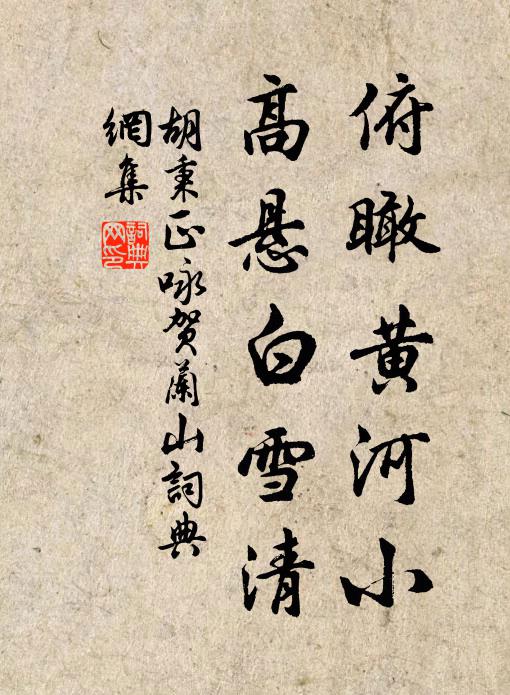 俯瞰黄河小
高悬白雪清
胡秉正咏贺蘭山詞典
網集
詞典網印